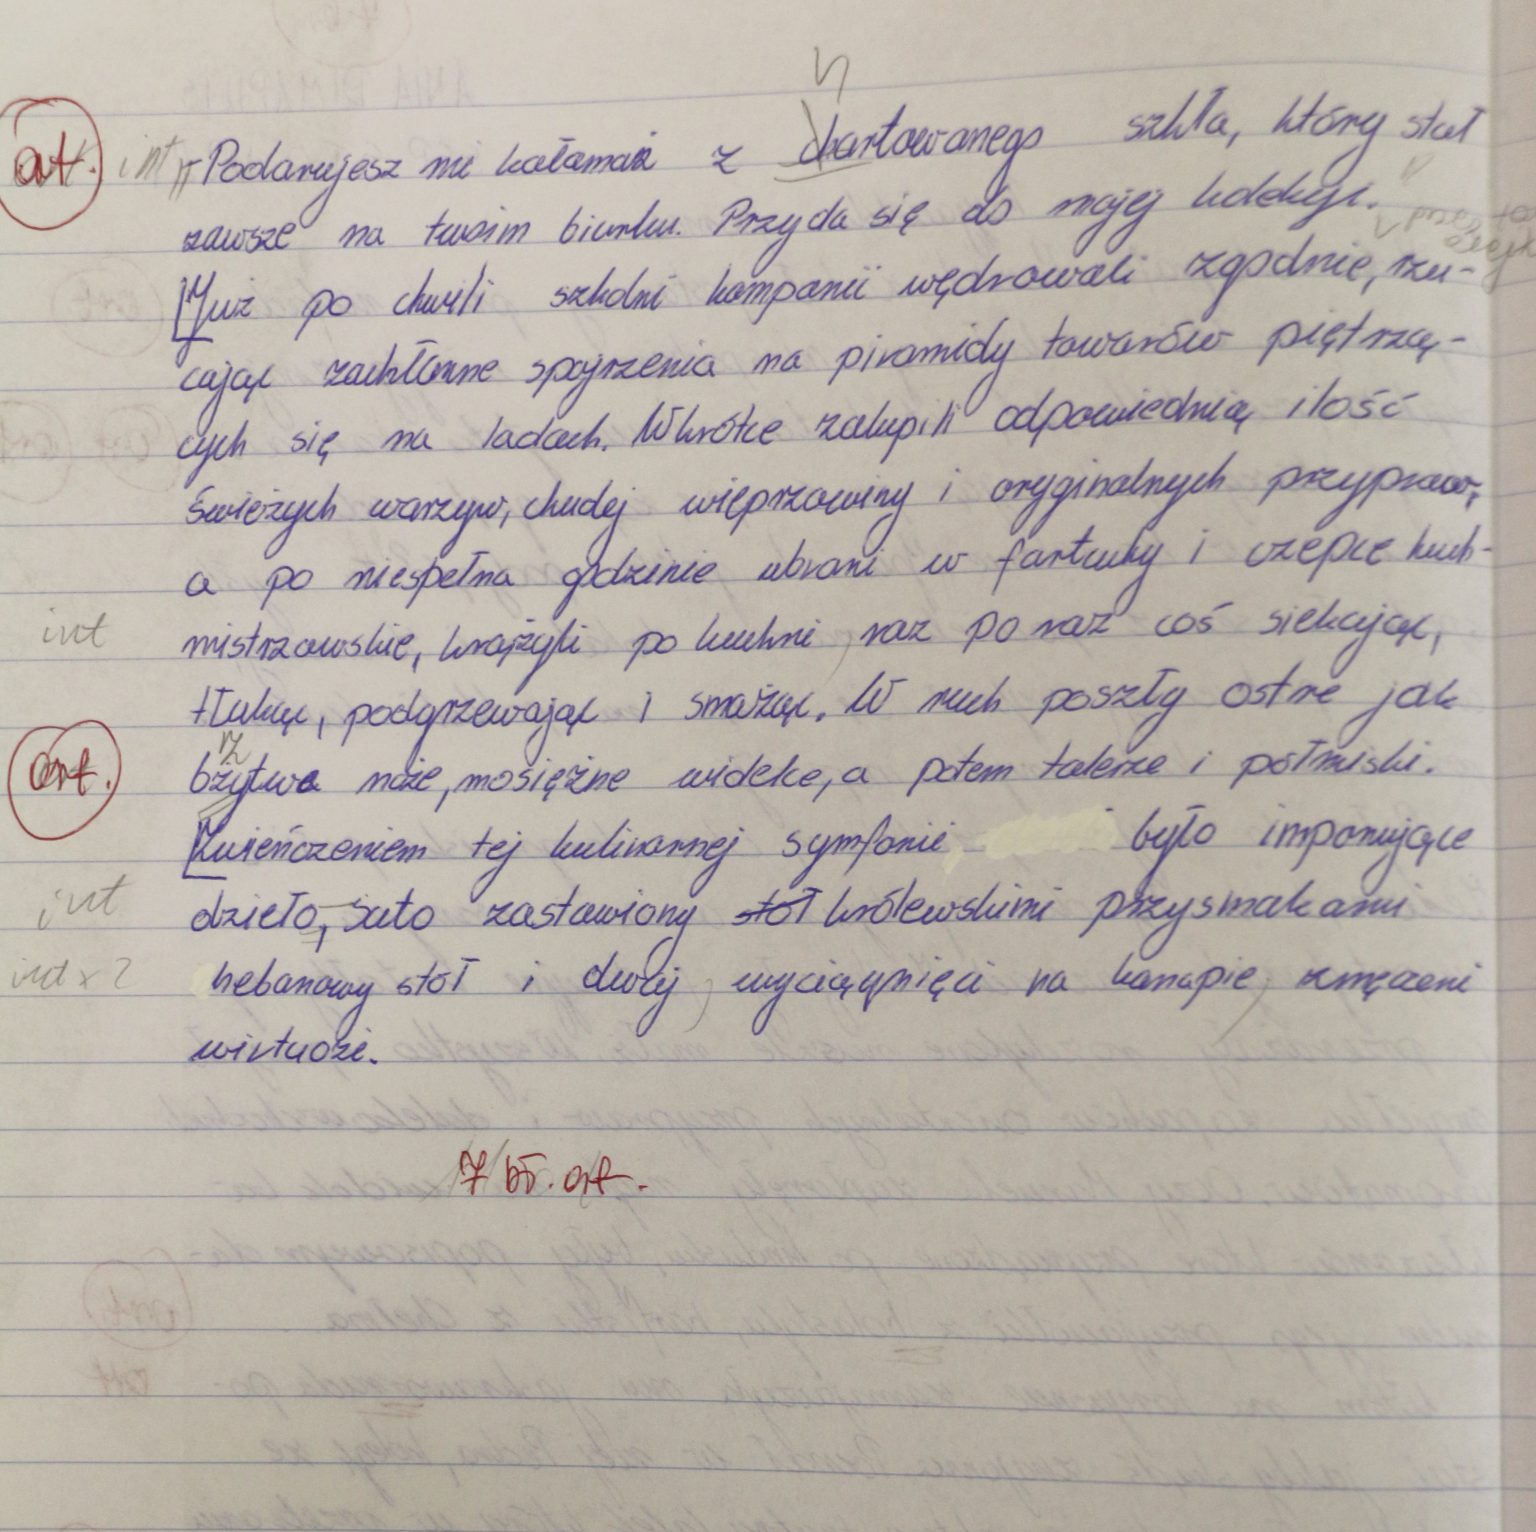 ort. int "Podarujesz mi kałamaż z chartowanego szkła, który stał
zawsze na twoim biurku. Przyda się do mojej kolekcji.
Już po chwili szkolni kompanii wędrowali zgodnie, rzu-
cając zachłanne spojrzenia na piramidy towarów piętrzą-
cych się na ladach. Wkrótce zakupili odpowiednią ilość
świeżych warzyw, chudej wieprzowiny i oryginalnych przypraw,
a po niespełna godzinie ubrani w fartuchy i czepce kuch-
int mistrzowskie, krążyli po kuchni, raz po raz coś siekając,
tłukąc, podgrzewając i smażąc. W ruch poszły ostre jak
rz
ort. bżytwa noże, mosiężne widelce, a potem talerze i półmiski.
Zwieńczeniem tej kulinarnej symfonii było imponujące
int dzieło, suto zastawiony stół królewskimi przysmakami
int x 2 hebanowy stół i dwój, wyciągnięci na kanapie, zmęczeni
wirtuozi.
7 bł. ort.